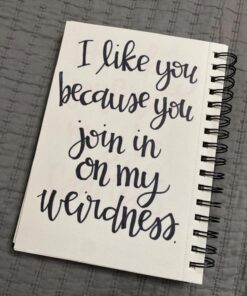 I like you
because you
join in
on my
weirdness.